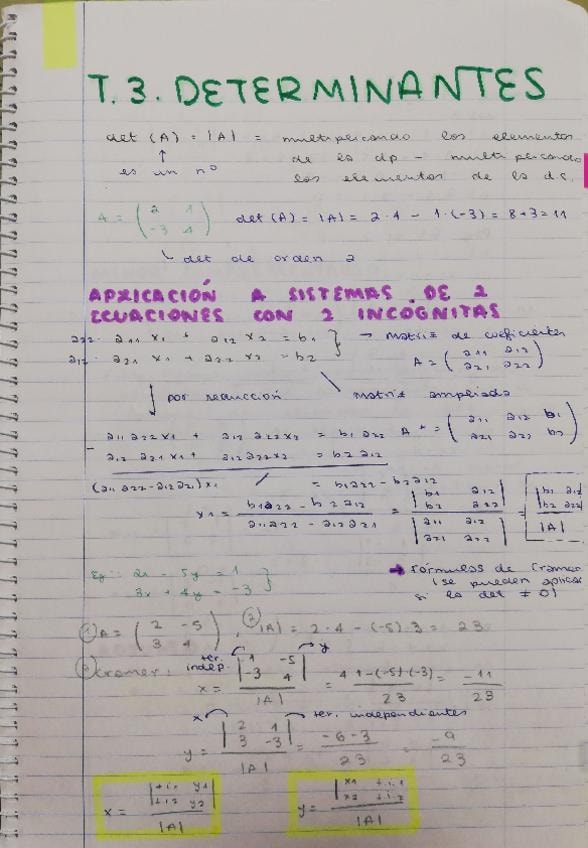 T.3. DETERMINANTES
det (A) = |A| = multiplicando los elementos
↑ de la dp - multiplicando
es un nº los elementos de la ds.
A = (2 1 / -3 4) det (A) = |A| = 2·4 - 1·(-3) = 8+3 = 11
↳ det de orden 2
APLICACIÓN A SISTEMAS DE 2
ECUACIONES CON 2 INCOGNITAS
a22· a11 x1 + a12 x2 = b1 } → matriz de coeficientes
a12· a21 x1 + a22 x2 = b2 A = (a11 a12 / a21 a22)
↓ por reducción matriz ampliada
a11 a22 x1 + a12 a22 x2 = b1 a22 A* = (a11 a12 b1 / a21 a22 b2)
- a12 a21 x1 + a12 a22 x2 = b2 a12
(a11 a22 - a12 a21) x1 / = b1 a22 - b2 a12
x1 = (b1 a22 - b2 a12) / (a11 a22 - a12 a21) = |b1 a12 / b2 a22| / |a11 a12 / a21 a22| = |b1 a12 / b2 a22| / |A|
→ fórmulas de Cramer
(se pueden aplicar
si la det ≠ 0)
Eg: 2x - 5y = 1 }
3x + 4y = -3
① A = (2 -5 / 3 4), ② |A| = 2·4 - (-5)·3 = 23
Cramer: ter. indep. y
x = |1 -5 / -3 4| / |A| = 4·1 - (-5)·(-3) / 23 = -11 / 23
x ter. independientes
y = |2 1 / 3 -3| / |A| = -6-3 / 23 = -9 / 23
x = |t.i.1 y1 / t.i.2 y2| / |A| y = |x1 t.i.1 / x2 t.i.2| / |A|